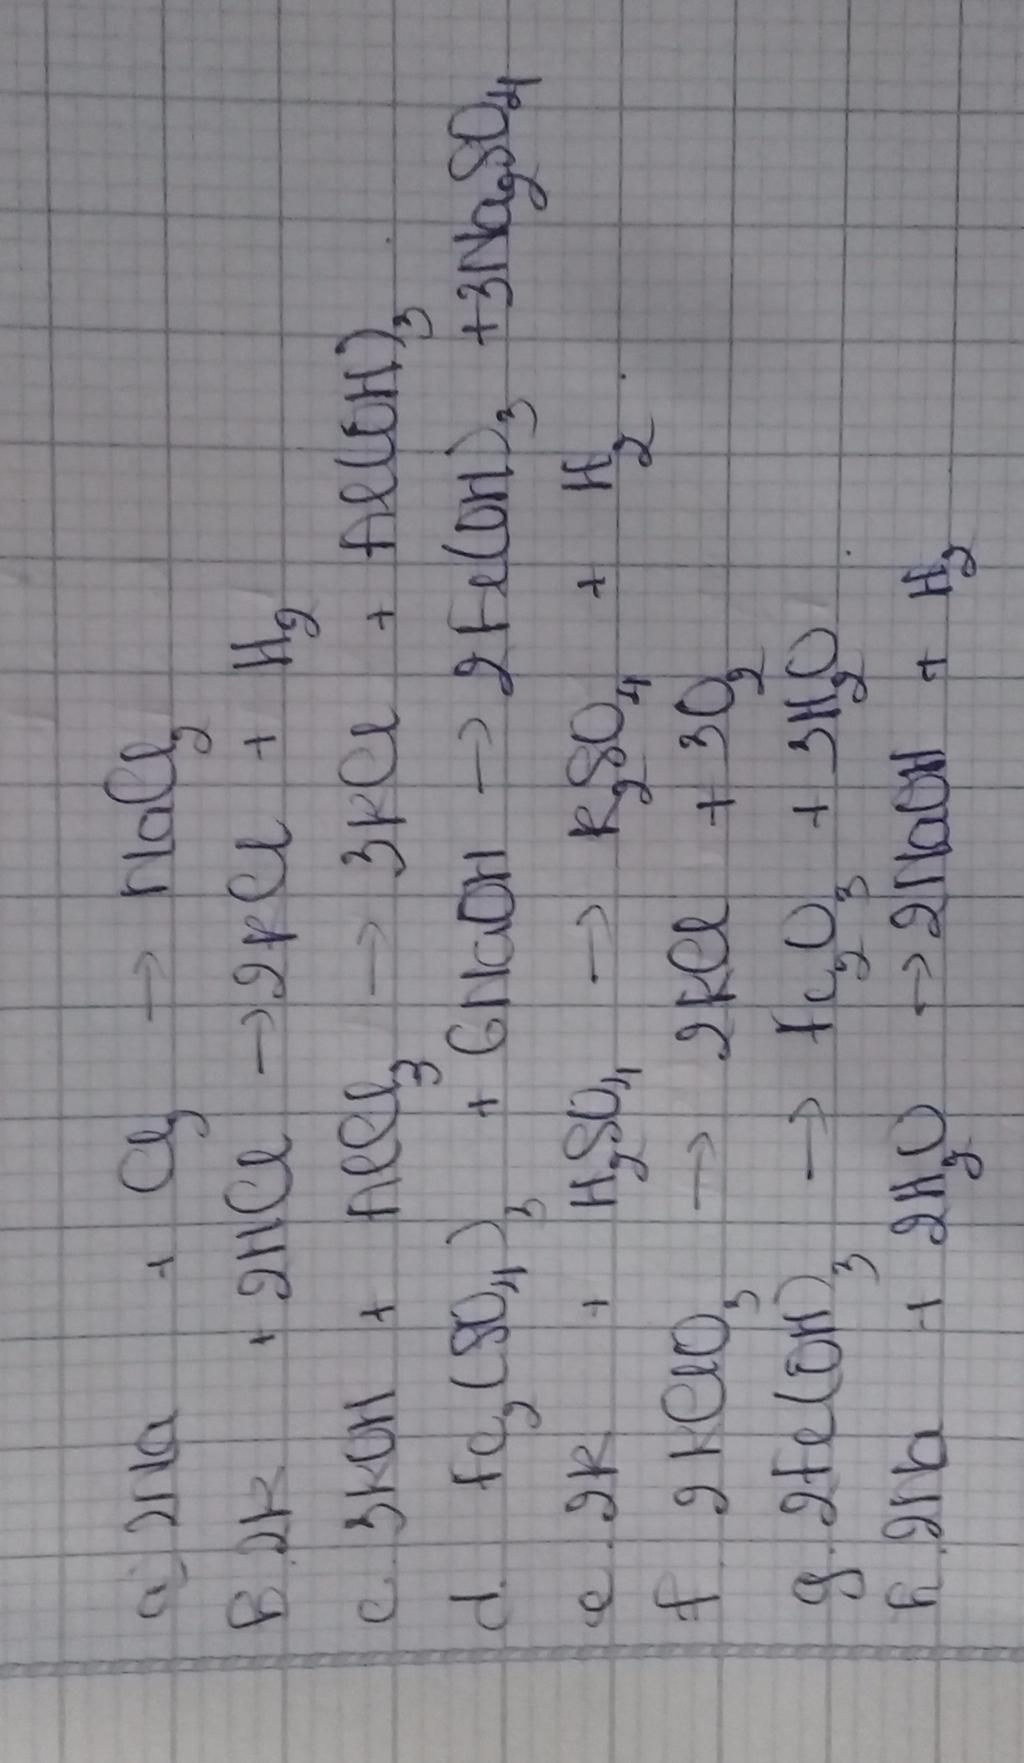 a. 2Na + Cl₂ → NaCl₂
B. 2K + 2HCl → 2KCl + H₂
c. 3KOH + AlCl₃ → 3KCl + Al(OH)₃
d. Fe₂(SO₄)₃ + 6NaOH → 2Fe(OH)₃ + 3Na₂SO₄
e. 2K + H₂SO₄ → K₂SO₄ + H₂
f 2KClO₃ → 2KCl + 3O₂
g. 2Fe(OH)₃ → Fe₂O₃ + 3H₂O
h. 2Na + 2H₂O → 2NaOH + H₂